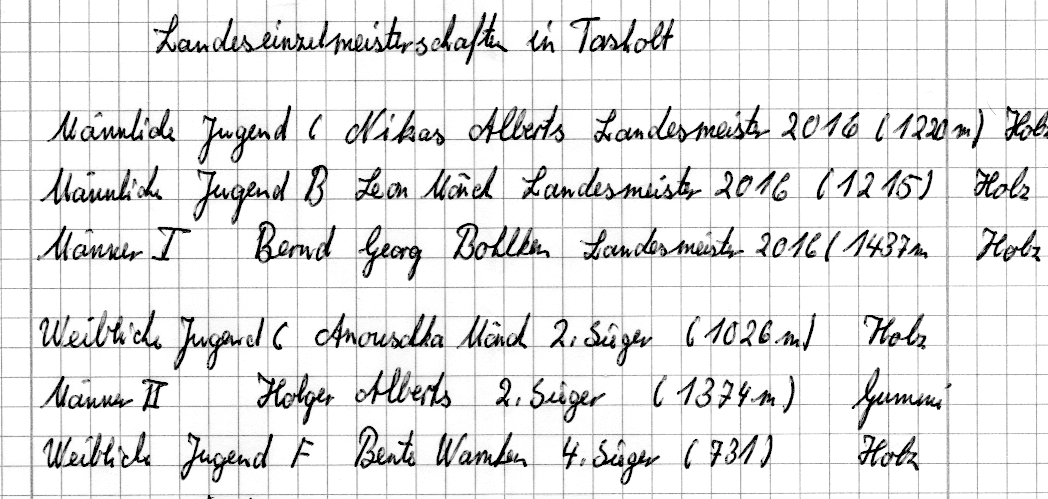 Landeseinzelmeisterschaften in Tarbolt
Männliche Jugend C Nikas Alberts Landesmeister 2016 (1220 m) Holz
Männliche Jugend B Leon Mönch Landesmeister 2016 (1215) Holz
Männer I Bernd Georg Bohlken Landesmeister 2016 (1437m Holz
Weibliche Jugend C Anouschka Mönch 2. Sieger (1026 m) Holz
Männer II Holger Alberts 2. Sieger (1374 m) Gummi
Weibliche Jugend F Bente Wamken 4. Sieger (731) Holz